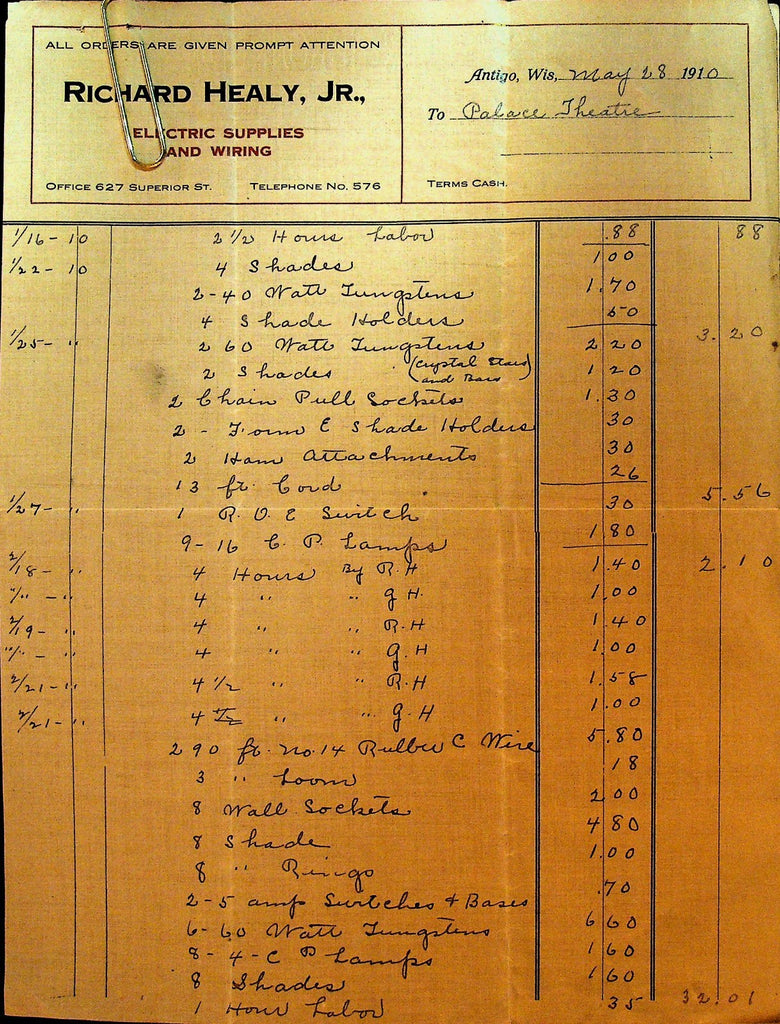 ALL ORDERS ARE GIVEN PROMPT ATTENTION
RICHARD HEALY, JR.,
ELECTRIC SUPPLIES
AND WIRING
OFFICE 627 SUPERIOR ST. TELEPHONE NO. 576
Antigo, Wis, May 28 1910
To Palace Theatre
TERMS CASH.
1/16 - 10 2 1/2 Hours Labor .88 88
1/22 - 10 4 Shades 1.00
2 - 40 Watt Tungstens 1.70
4 Shade Holders 50 3.20
1/25 - " 2 60 Watt Tungstens 2 20
2 Shades (Crystal Stars and Bars) 1 20
2 Chain Pull Sockets 1.30
2 - Form E Shade Holders 30
2 Ham Attachments 30
13 ft. Cord 26 5.56
1/27 - " 1 R. O. E Switch 30
9 - 16 C. P. Lamps 1.80 2.10
2/18 - " 4 Hours By R.H 1.40
"/" - " 4 " " G.H. 1.00
2/19 - " 4 " " R.H 1.40
"/" - " 4 " " G.H 1.00
2/21 - " 4 1/2 " " R.H 1.58
2/21 - " 4 1/2 " " G.H 1.00
290 ft. No. 14 Rubber C Wire 5.80
3 " Loom .18
8 Wall Sockets 2 00
8 Shade 4 80
8 " Rings 1.00
2 - 5 amp Switches & Bases .70
6 - 60 Watt Tungstens 6 60
8 - 4 - C P Lamps 1 60
8 Shades 1 60
1 Hour Labor 35 32.01